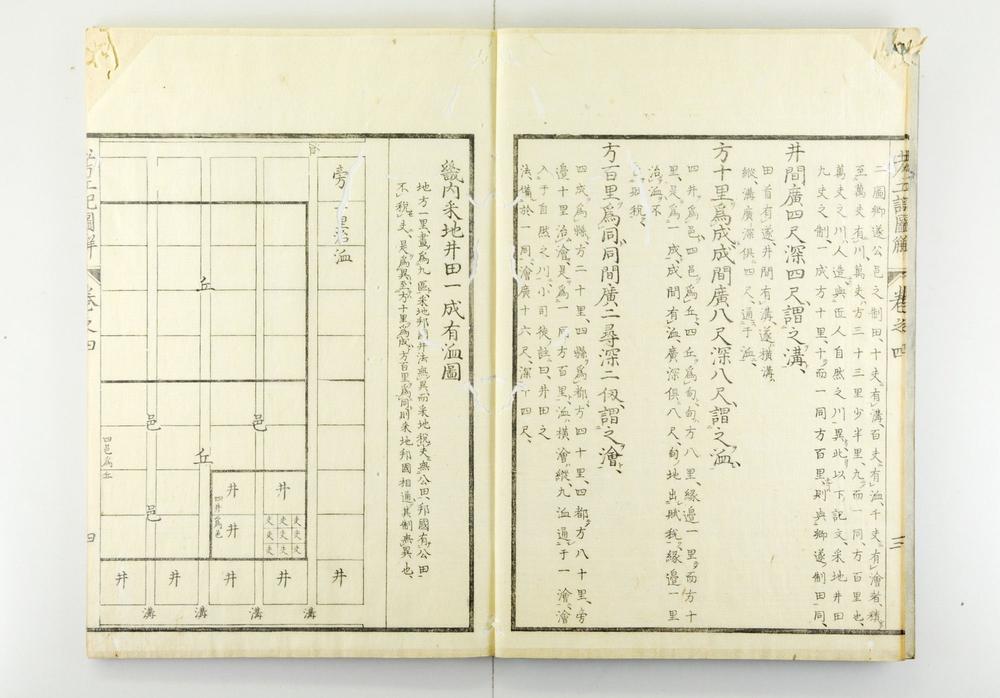 二圖鄉遂公邑之制田、十夫有溝、百夫有洫、千夫有澮者、積
至萬夫有川、萬夫方三十三里少半里、九而一同、方百里也、
萬夫之川、人造與匠人自然之川異、此以下記文、采地井田
九夫之制、一成方十里、十而一同方百里、則與鄉遂制田同、
井間廣四尺深四尺、謂之溝、
田首有遂、井間有溝、遂橫溝
縱、溝廣深俱四尺、通于洫、
方十里爲成、成間廣八尺深八尺、謂之洫、
四井爲邑、四邑爲丘、四丘爲甸、甸方八里、緣邊一里、而方十
里、是爲一成、成間有洫、廣深俱八尺、甸地出賦稅、緣邊一里
治洫、不
出稅、
方百里爲同、同間廣二尋深二仞、謂之澮、
四成爲縣、方二十里、四縣爲都、方四十里、四都方八十里、旁
邊十里治澮、是爲一同方百里、洫橫澮縱、九洫通于一澮、澮
入于自然之川、小司徒註曰、井田之
法、備於一同、澮廣十六尺、深十四尺、
考工記圖解 卷之四 三
畿內采地井田一成有洫圖
地方一里、畫爲九區、采地邦國井法無異、而采地稅夫無公田、邦國有公田
不稅夫、是爲異、至方十里爲成、方百里爲同、則采地邦國相通、其制無異也、
旁一里治洫
丘
邑 邑
丘
四邑爲丘
邑
井 井
四井爲邑
井
夫夫夫
夫夫夫
夫夫夫
井 井 井 井 井
溝 溝 溝 溝
考工記圖解 卷之四 四